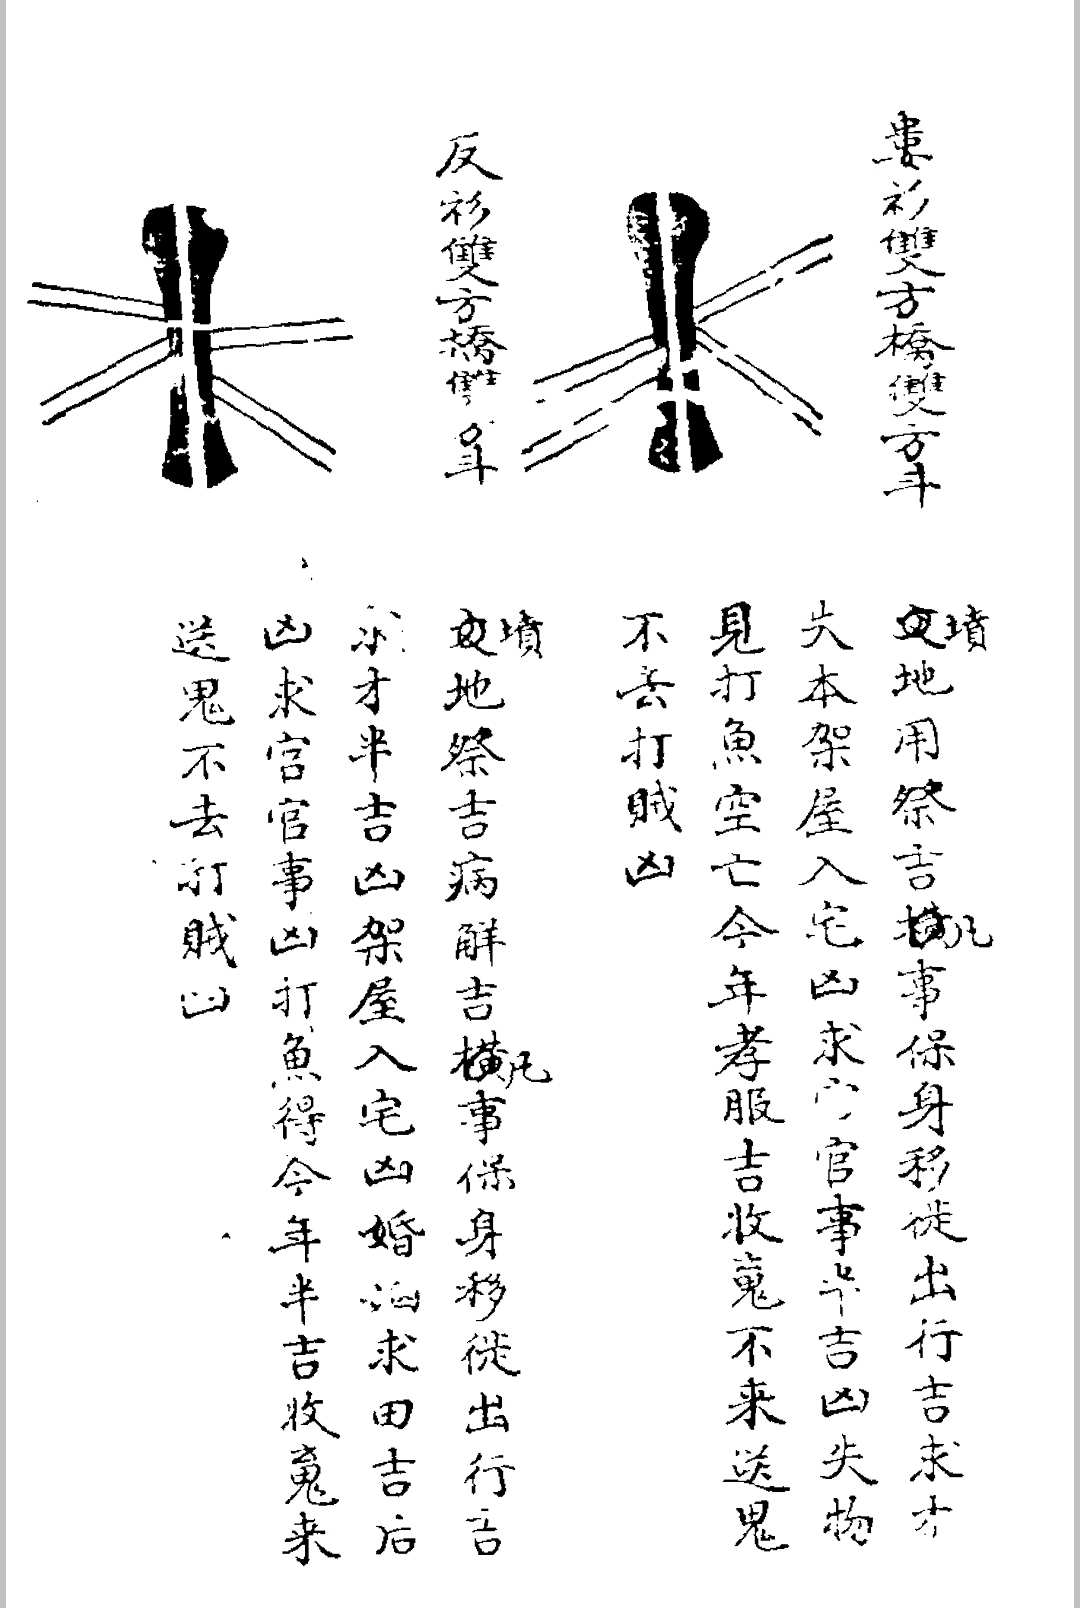 衫雙方橋雙方斗
墳地用祭吉凡事保身移徙出行吉求才
失本架屋入宅凶求官事半吉凶失物
見打魚空亡今年孝服吉收魂不来送鬼
不去打賊凶
反衫雙方橋雙方斗
墳地祭吉病解吉凡事保身移徙出行吉
求才半吉凶架屋入宅凶婚求田吉后
凶求官官事凶打魚得今年半吉收魂来
送鬼不去打賊凶